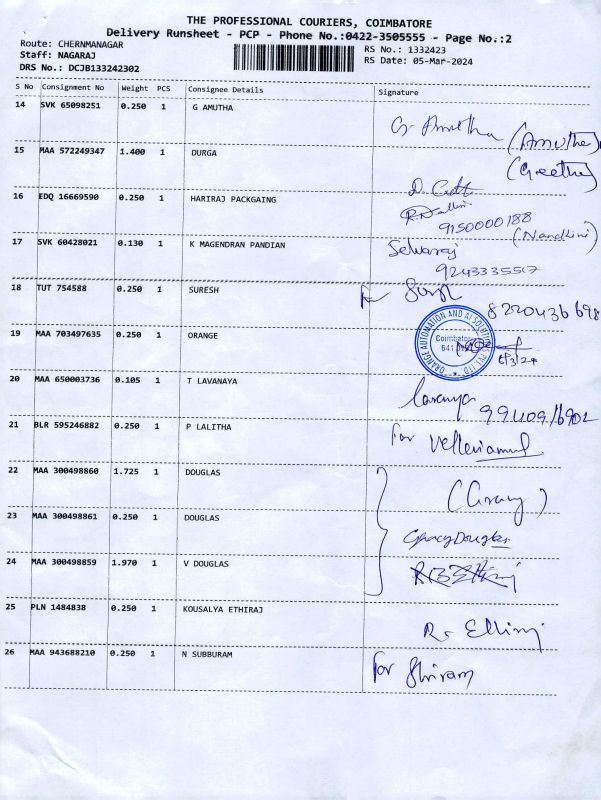 THE PROFESSIONAL COURIERS, COIMBATORE
Delivery Runsheet - PCP - Phone No.:0422-3505555 - Page No.:2
Route: CHERNMANAGAR
RS No.: 1332423
Staff: NAGARAJ
RS Date: 05-Mar-2024
DRS No.: DCJB133242302
S No Consignment No Weight PCS Consignee Details Signature
14 SVK 65098251 0.250 1 G AMUTHA
G. Amutha (Amutha)
15 MAA 572249347 1.400 1 DURGA
(Geetha)
16 EDQ 16669590 0.250 1 HARIRAJ PACKGAING
9150000188
(Nandhini)
17 SVK 60428021 0.130 1 K MAGENDRAN PANDIAN
Selvaraj
9243335517
18 TUT 754588 0.250 1 SURESH
19 MAA 703497635 0.250 1 ORANGE
ORANGE AUTOMATION AND AI SOLUTION PVT LTD
Coimbatore
641
20 MAA 650003736 0.105 1 T LAVANAYA
Lavanya
21 BLR 595246882 0.250 1 P LALITHA
for
22 MAA 300498860 1.725 1 DOUGLAS
23 MAA 300498861 0.250 1 DOUGLAS
Gracy Douglas
24 MAA 300498859 1.970 1 V DOUGLAS
25 PLN 1484838 0.250 1 KOUSALYA ETHIRAJ
26 MAA 943688210 0.250 1 N SUBBURAM
for Shriram